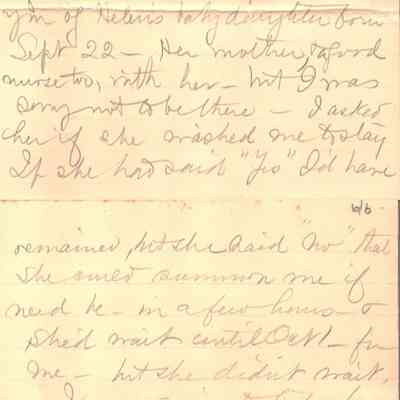 of Helen's baby daughter born
Sept 22 — Her mother, & good
nurse too, with her — but I was
sorry not to be there — I asked
her if she wished me to stay
If she had said "Yes" I'd have
6/6
remained, but she said "No" that
she could summon me if
need be — in a few hours — &
she'd wait until Oct 1 — for
me — but she didn't wait.